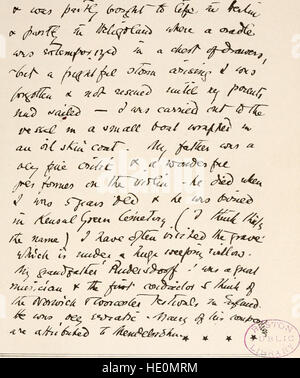 & was partly brought to life in Berlin
& partly in Heligoland where a cradle
was extemporized in a chest of drawers,
but a frightful storm arising I was
forgotten & not rescued until my parents
had sailed — I was carried out to the
vessel in a small boat wrapped in
an oil skin coat. My father was a
very fine critic & a wonderful
performer on the violin - he died when
I was 5 years old & he was buried
in Kensal Green Cemetery (I think that's
the name) I have often visited the grave
which is under a huge weeping willow.
My grandfather Rudersdorff was a great
musician & the first conductor I think of
the Norwich & Worcester Festivals in England.
He was very erratic. Many of his
are attributed to Mendelssohn.
BOSTON
PUBLIC
LIBRARY
alamy
Image ID: HE0MRM
www.alamy.com